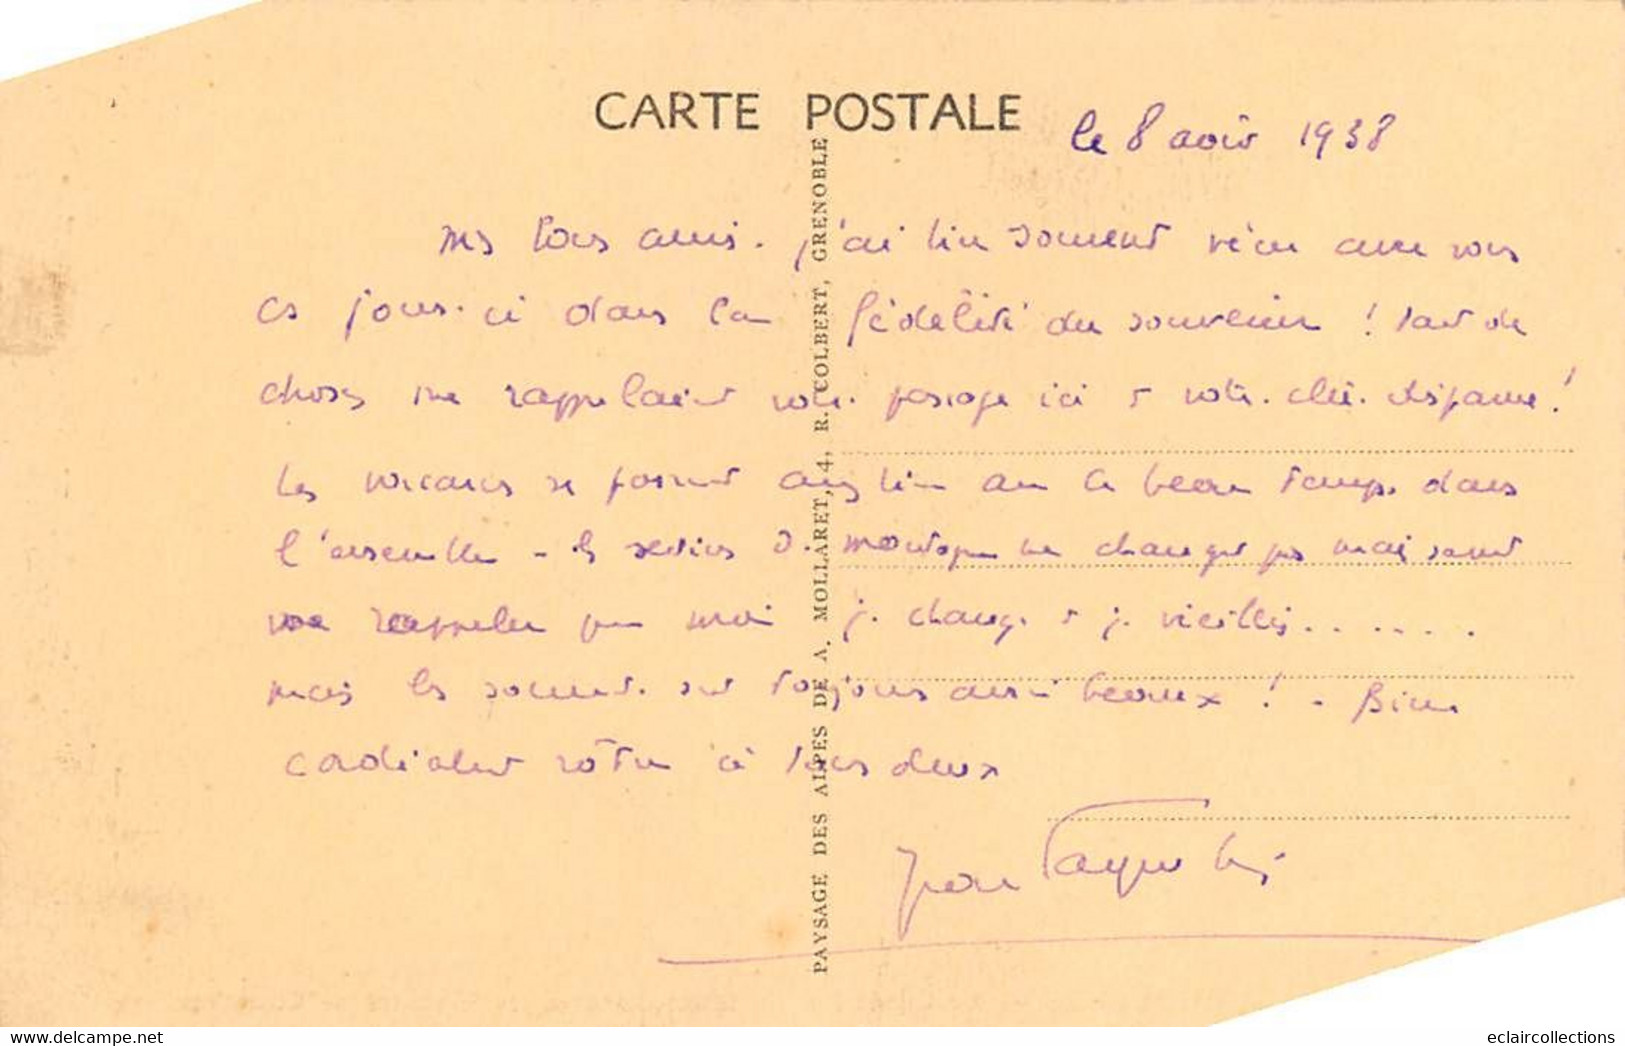 CARTE POSTALE
le 8 août 1938
mes bons amis. j'ai bien souvent vécu avec vous
ces jours-ci dans la fidélité du souvenir ! tant de
choses me rappelaient votre passage ici et votre chère disparue !
Les vacances se passent assez bien avec ce beau temps dans
l'ensemble - les de montagne ne changent pas mais savent
me rappeler que moi je change et je vieillis......
mais les sont toujours aussi beaux ! - Bien
cordialement vôtre à tous deux
PAYSAGE DES ALPES DE A. MOLLARET, 4, R. COLBERT, GRENOBLE
https://www.delcampe.net
eclaircollections